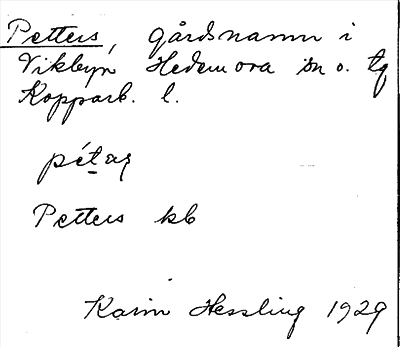 Petters, gårdsnamn i
Vikbyn Hedemora sn o. tg
Kopparb. l.
pétaʒ
Petters kb
Karin Hessling 1929